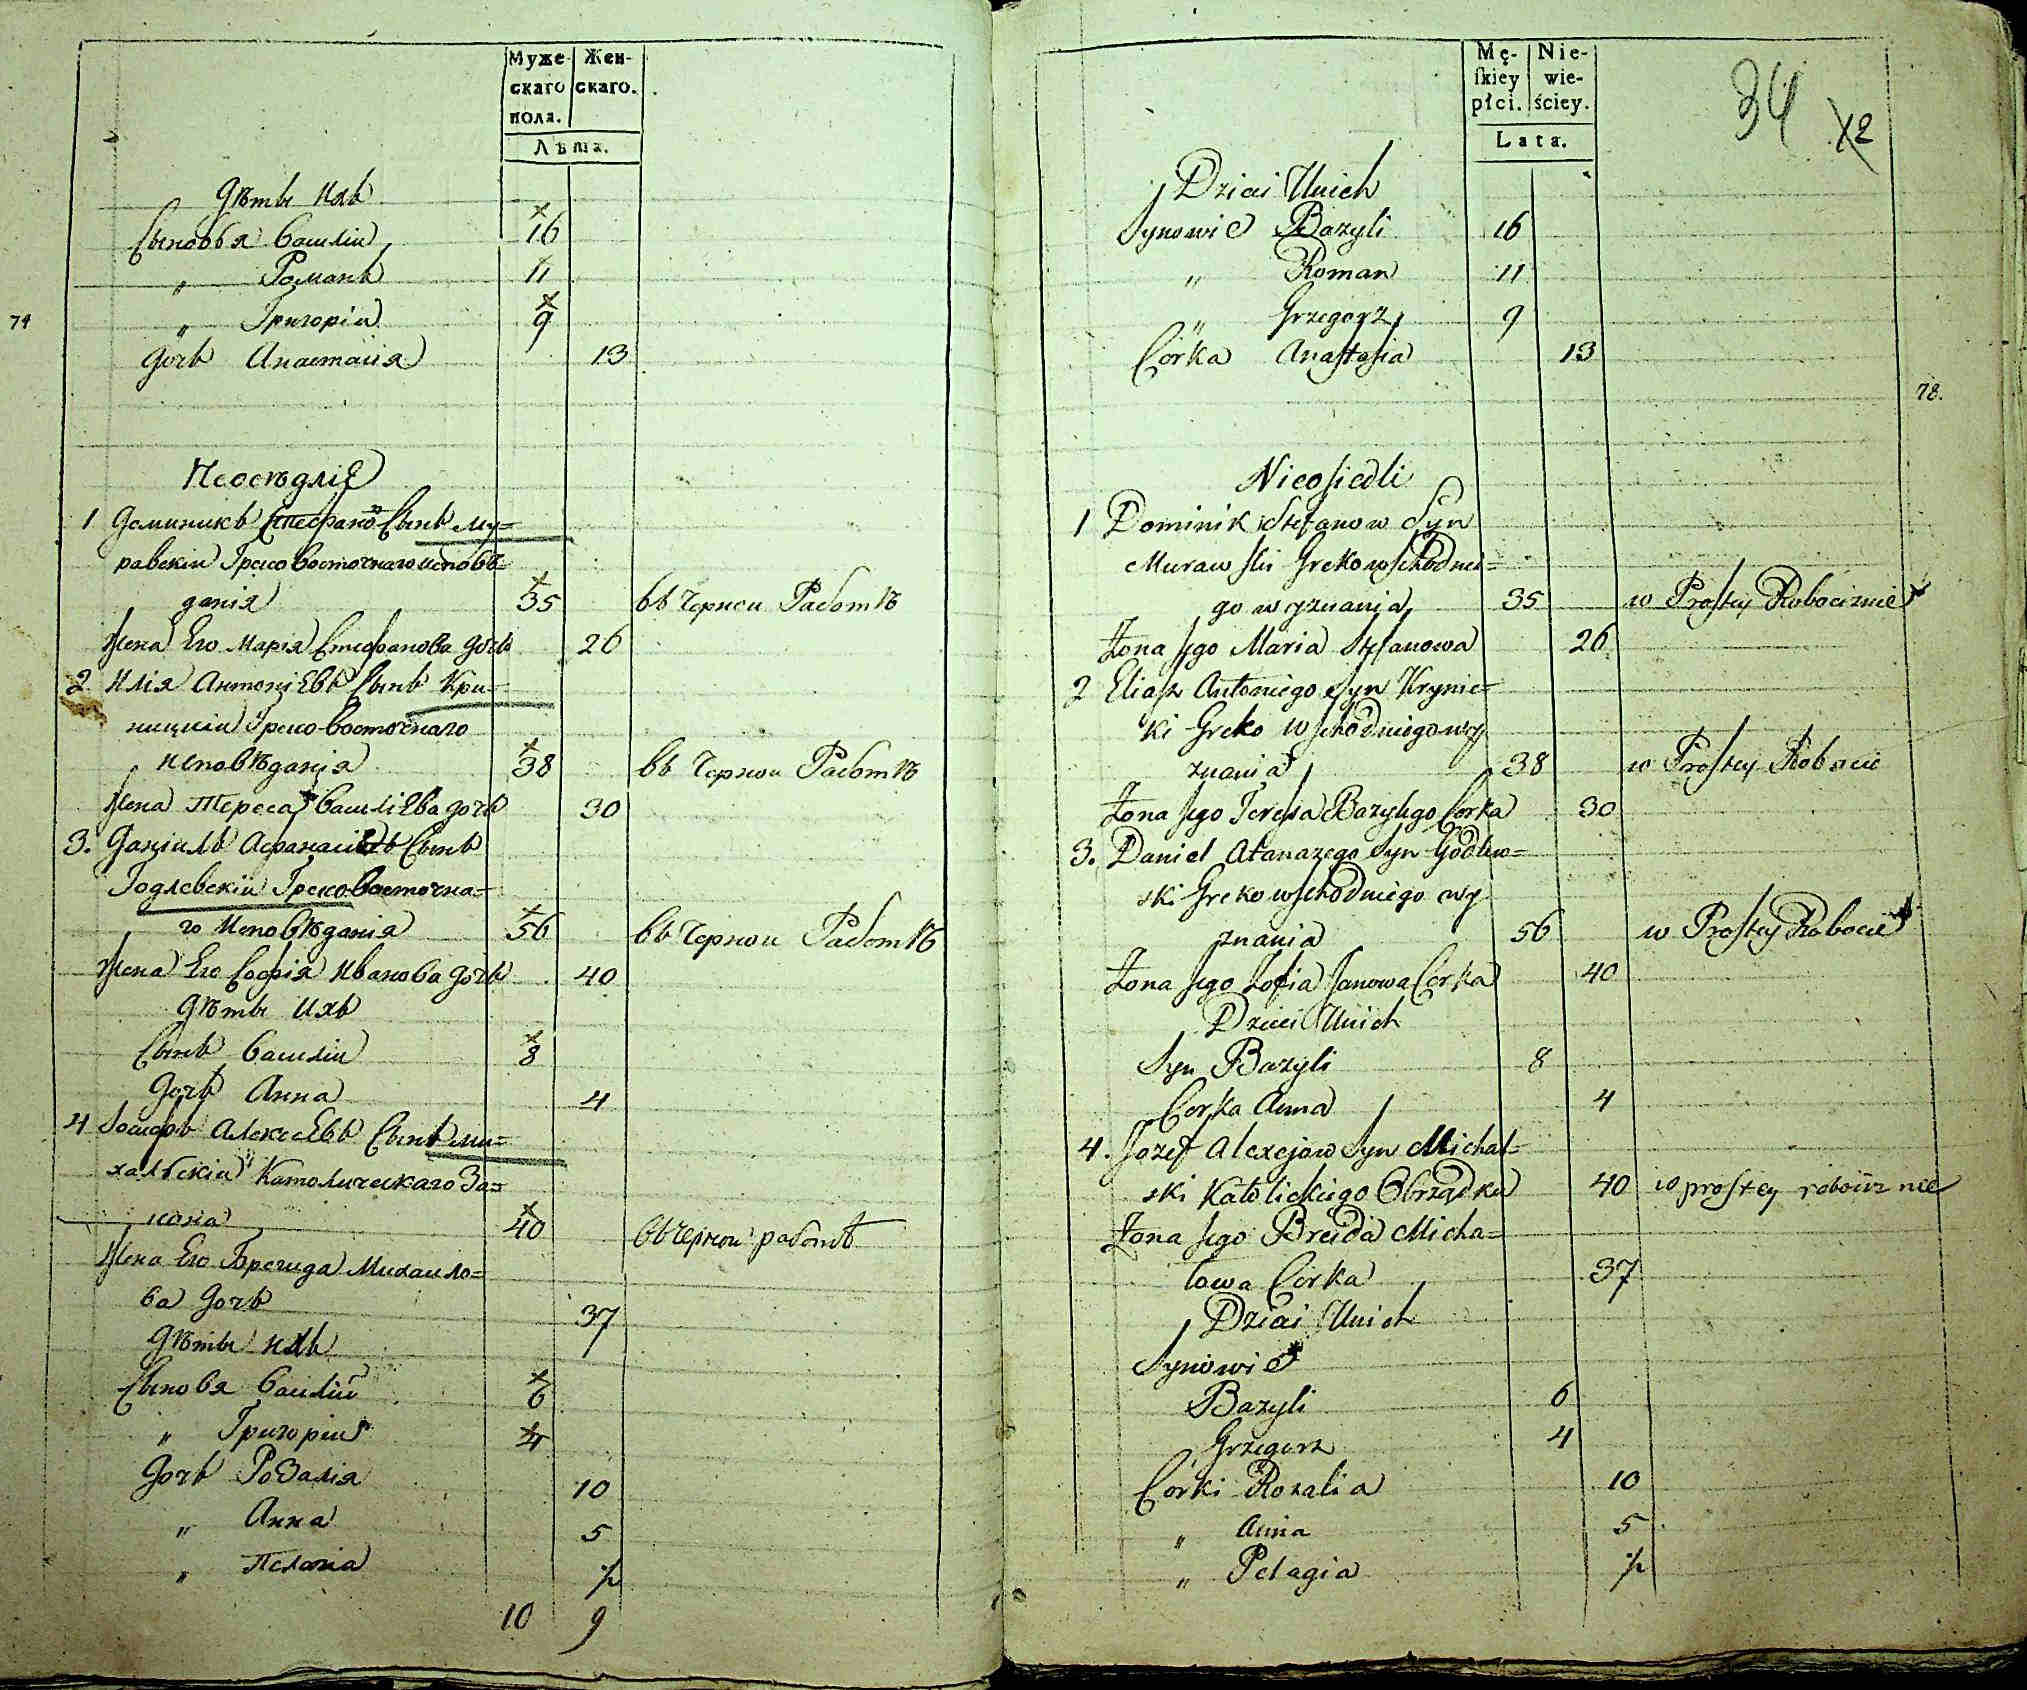 Муже-
скаго
пола.
Жен-
скаго.
Лѣта.
Дѣти ихъ
Сыновья Василій 16
„ Романъ 11
74
„ Григорій 9
Дочь Анастасія 13
Неосѣдліе
1 Доминикъ Стефановъ Сынъ Му=
равскій Греко Восточнаго исповѣ=
данія 35 въ Черной Работѣ
Жена Его Марія Стефанова дочь 26
2 Илія Антоніевъ Сынъ Кри=
ницкій Греко-Восточнаго
исповѣданія 38 въ Черной Работѣ
Жена Тереса Василіева дочь 30
3. Даніилъ Афанасіевъ Сынъ
Годлевскій Греко Восточна=
го Исповѣданія 56 въ Черной Работѣ
Жена Его Софія Иванова дочь 40
Дѣти Ихъ
Сынъ Василій 8
Дочь Анна 4
4 Іосифъ Алексеевъ Сынъ Ми=
хальскій Католическаго За=
кона 40 въ черной работѣ
Жена Его Бречида Михайло=
ва Дочь 37
Дѣти ихъ
Сыновя Василій 6
„ Григорій 4
Дочь Розалія 10
„ Анна 5
„ Пелагія ½
10 9
Mę-
ſkiey
płci.
Nie-
wie-
ściey.
Lata.
34
12
Dzieci Unich
Synowie Bazyli 16
„ Roman 11
„ Grzegorz 9
Córka Anastasia 13
78.
Nieosiedli
1 Dominik Stefanow Syn
Murawski Grekowschodnie=
go wyznania 35 w Prostey Robociznie
Żona Jego Maria Stefanowa 26
2 Eliasz Antoniego Syn Krynic=
ki Greko wschodniego wy
znania 38 w Prostey Robocie
Żona Jego Teresa Bazylego Corka 30
3. Daniel Atanazego Syn Godlew=
ski Greko wschodniego wy
znania 56 w Prostey Robocie
Żona Jego Zofia Janowa Corka 40
Dzieci Unich
Syn Bazyli 8
Corka Anna 4
4. Jozef Alexejow Syn Michal=
ski Katolickiego Obrządku 40 w prostey robociznie
Żona Jego Breida Micha=
łowa Córka 37
Dzieci Unich
Synowie
Bazyli 6
Grzegorz 4
Córki Rozalia 10
„ Anna 5
„ Pelagia ½